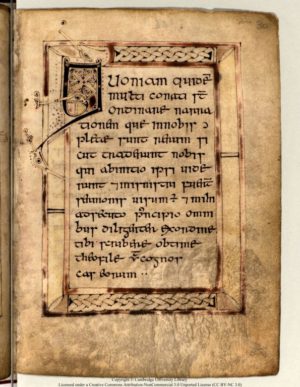 Quoniam quidē
multi conati sт̄
ordinare narra
tionem que innobis ɔ
pletae sunt rerum si
cut tradierunt nobis
qui abinitio ipsi uide
runt ⁊ ministri
uisum ÷ ⁊ mihi
adsecuto principio omni
bus diligenter ex ordine
tibi scribere obtime
theofile cognos
cas eorum··
Copyright © Cambridge University Library
Licensed under a Creative Commons Attribution-NonCommercial 3.0 Unported License (CC BY-NC 3.0)